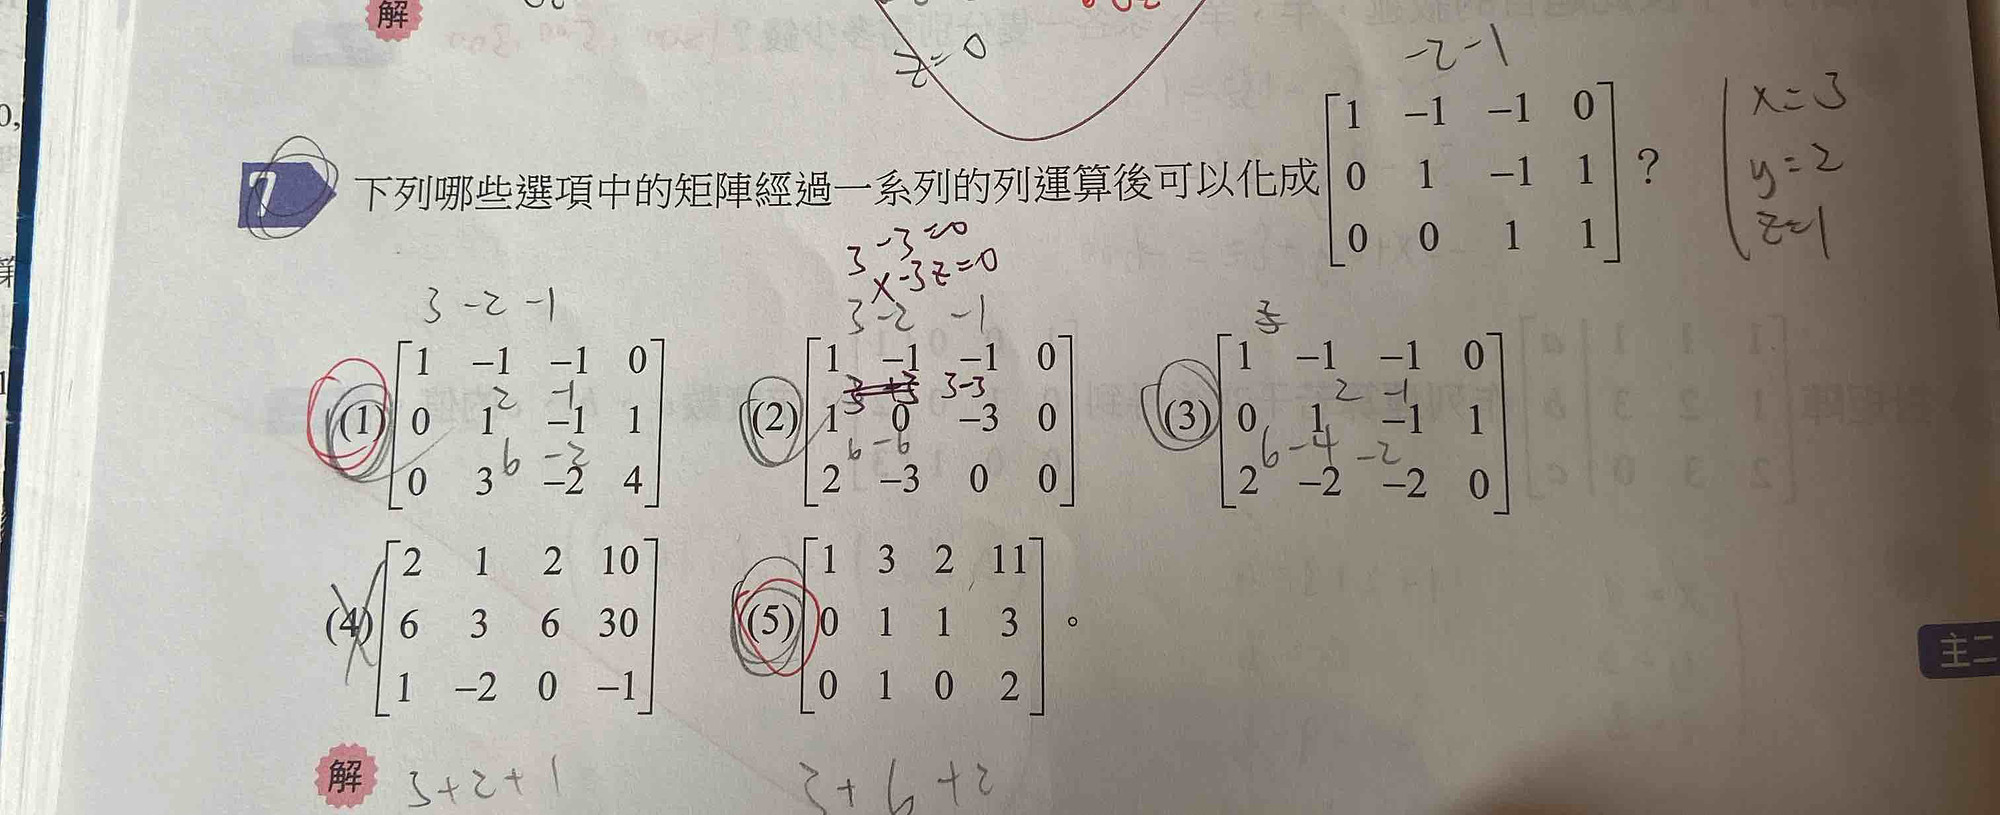 解
z=0
-2 -1
7 下列哪些選項中的矩陣經過一系列的列運算後可以化成 ?
1 −1 −1 0
0 1 −1 1
0 0 1 1
x=3
y=2
z=1
3 -3=0
x-3z=0
3 -2 -1
3 -2 -1
(1)
1 −1 −1 0
2 -1
0 1 −1 1
6 -2
0 3 −2 4
(2)
1 −1 −1 0
3-3
1 0 −3 0
6 -6
2 −3 0 0
(3)
1 −1 −1 0
2 -1
0 1 −1 1
6 -4 -2
2 −2 −2 0
(4)
2 1 2 10
6 3 6 30
1 −2 0 −1
(5)
1 3 2 11
0 1 1 3
0 1 0 2
。
主二
解
3+2+1
3+6+2